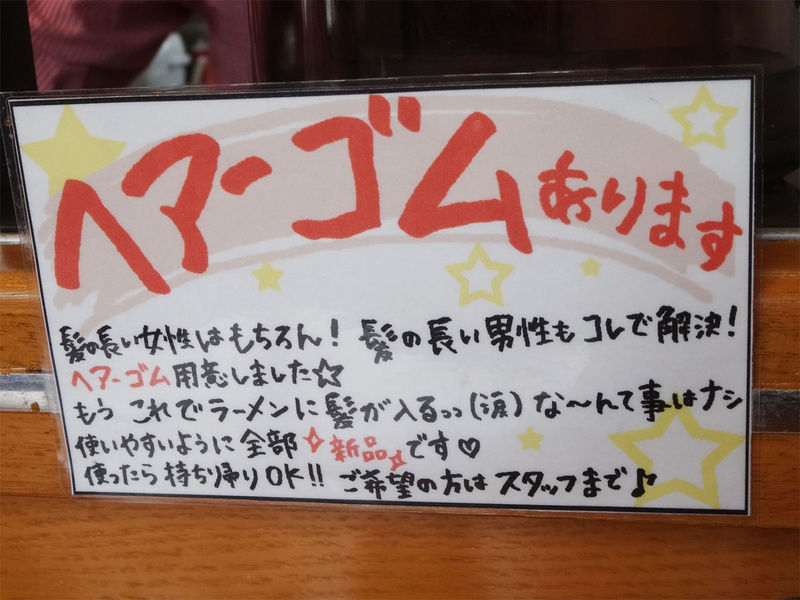 ヘアーゴムあります
髪の長い女性はもちろん! 髪の長い男性もコレで解決!
ヘアーゴム用意しました☆
もう これでラーメンに髪が入るっっ(涙) な〜んて事はナシ
使いやすいように全部新品です♡
使ったら持ち帰りOK!! ご希望の方はスタッフまで♪